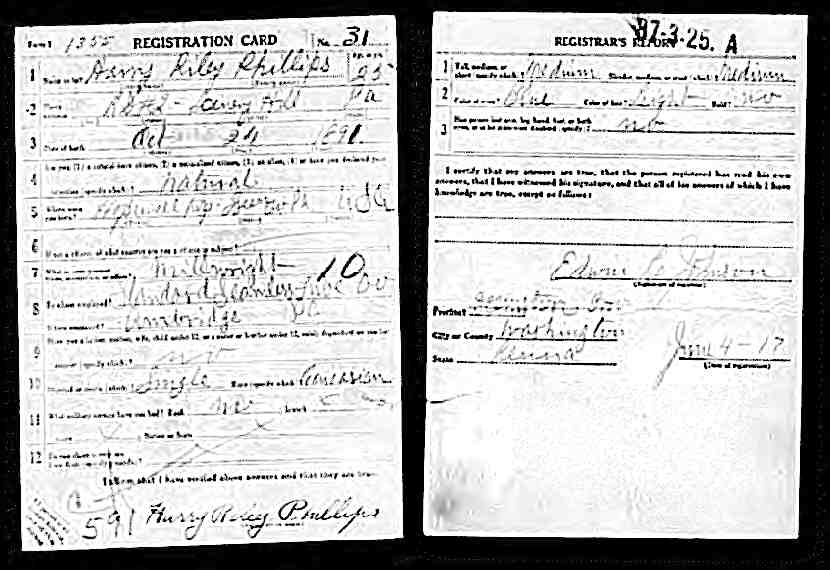 Form 1 1355 REGISTRATION CARD No. 31
1 Name in full Harry Riley Phillips 25
2 Home address Hill Pa
3 Date of birth Oct 24 1891
4 Are you (1) a natural-born citizen, (2) a naturalized citizen, (3) an alien, (4) or have you declared your
intention (specify which)? Natural
5 Where were you born? USA
6 If not a citizen, of what country are you a citizen or subject?
7 What is your present trade, occupation, or office? Millwright 10
8 By whom employed? Standard Seamless Tube Co
Where employed? Ambridge Pa
9 Have you a father, mother, wife, child under 12, or a sister or brother under 12, solely dependent on you for
support (specify which)? no
10 Married or single (which)? Single Race (specify which)? Caucasian
11 What military service have you had? Rank no ; branch
years ; Nation or State
12 Do you claim exemption from draft (specify grounds)?
I affirm that I have verified above answers and that they are true.
591 Harry Riley Phillips
REGISTRAR'S REPORT 37-3-25. A
1 Tall, medium, or short (specify which)? Medium Slender, medium, or stout (which)? Medium
2 Color of eyes? Blue Color of hair? Light Bald? No
3 Has person lost arm, leg, hand, foot, or both eyes, or is he otherwise disabled (specify)? no
I certify that my answers are true, that the person registered has read his own
answers, that I have witnessed his signature, and that all of his answers of which I have
knowledge are true, except as follows:
(Signature of registrar)
Precinct
City or County Washington
State Penna
June 4-17
(Date of registration)